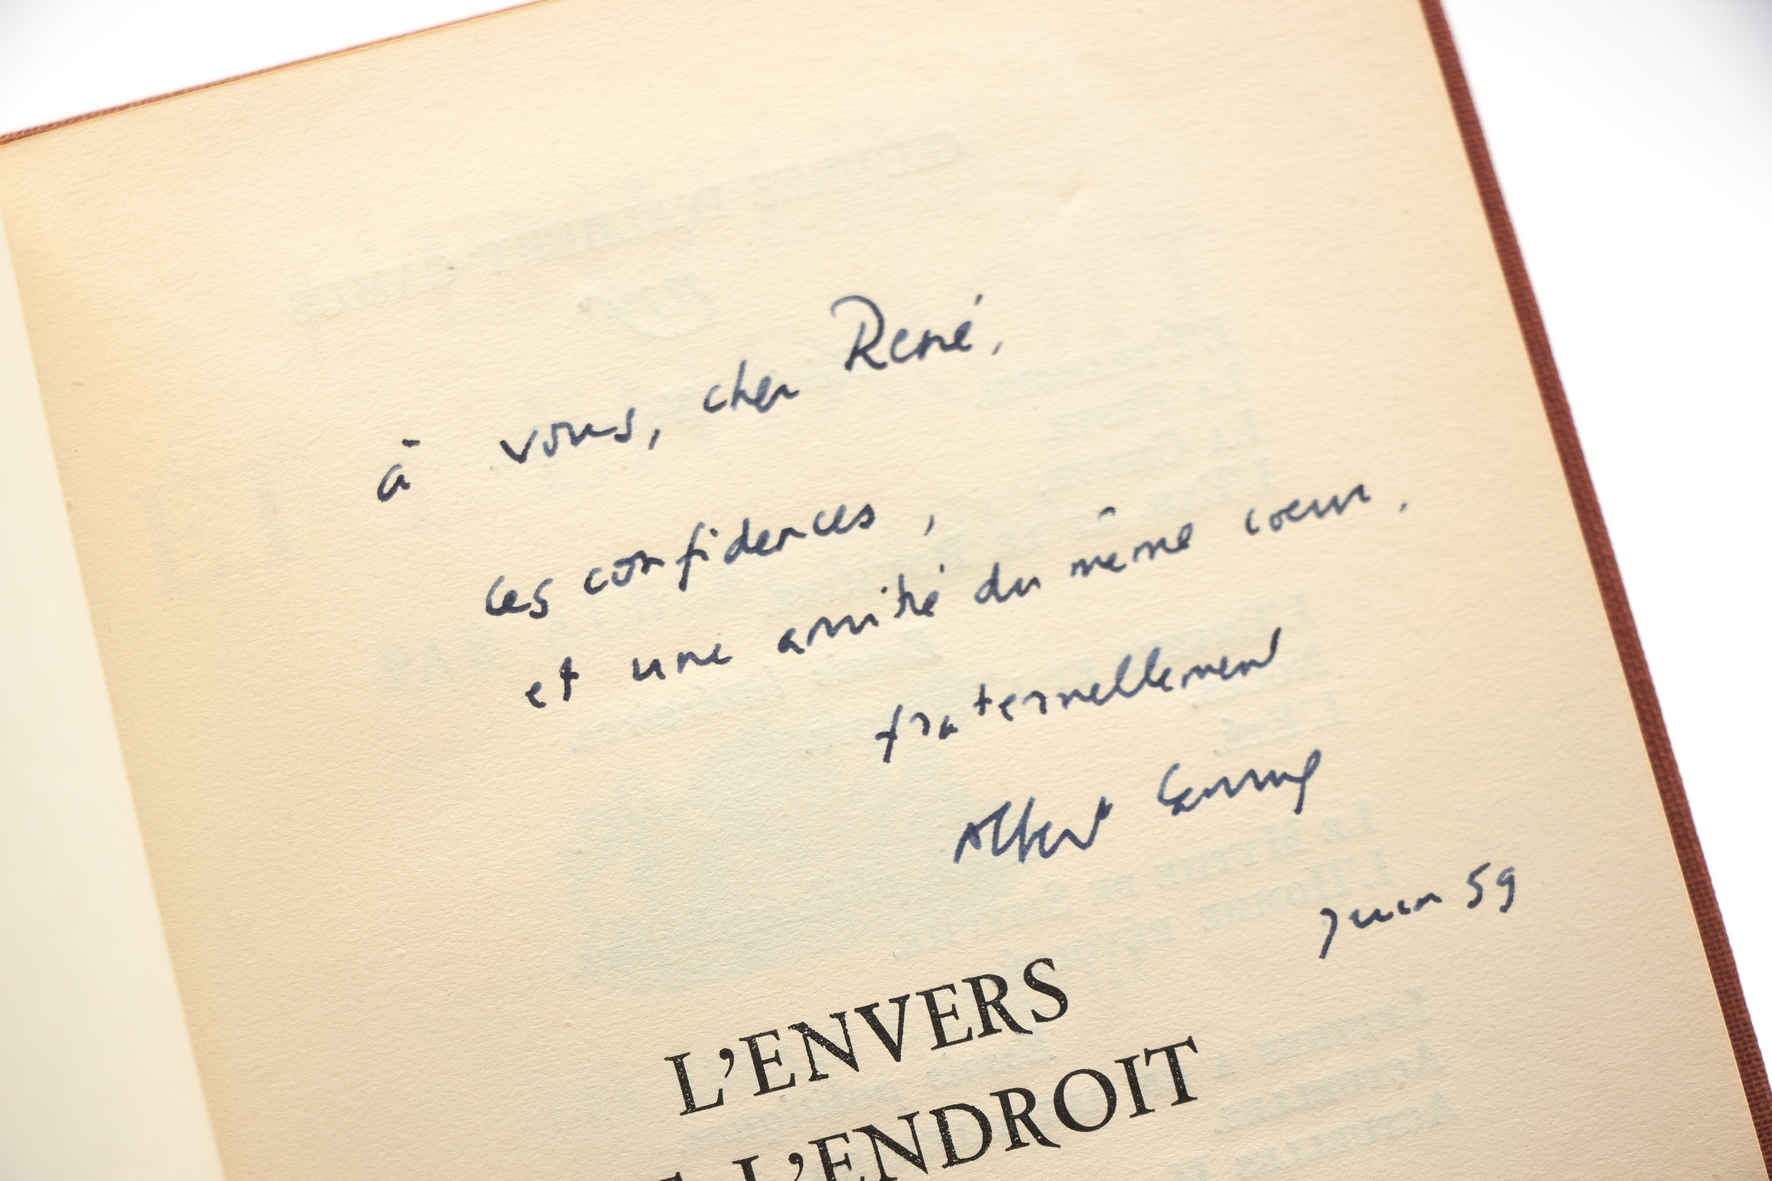 à vous, cher René,
ces confidences,
et une amitié du même cœur.
fraternellement
Albert Camus
Juin 59
L'ENVERS
L'ENDROIT